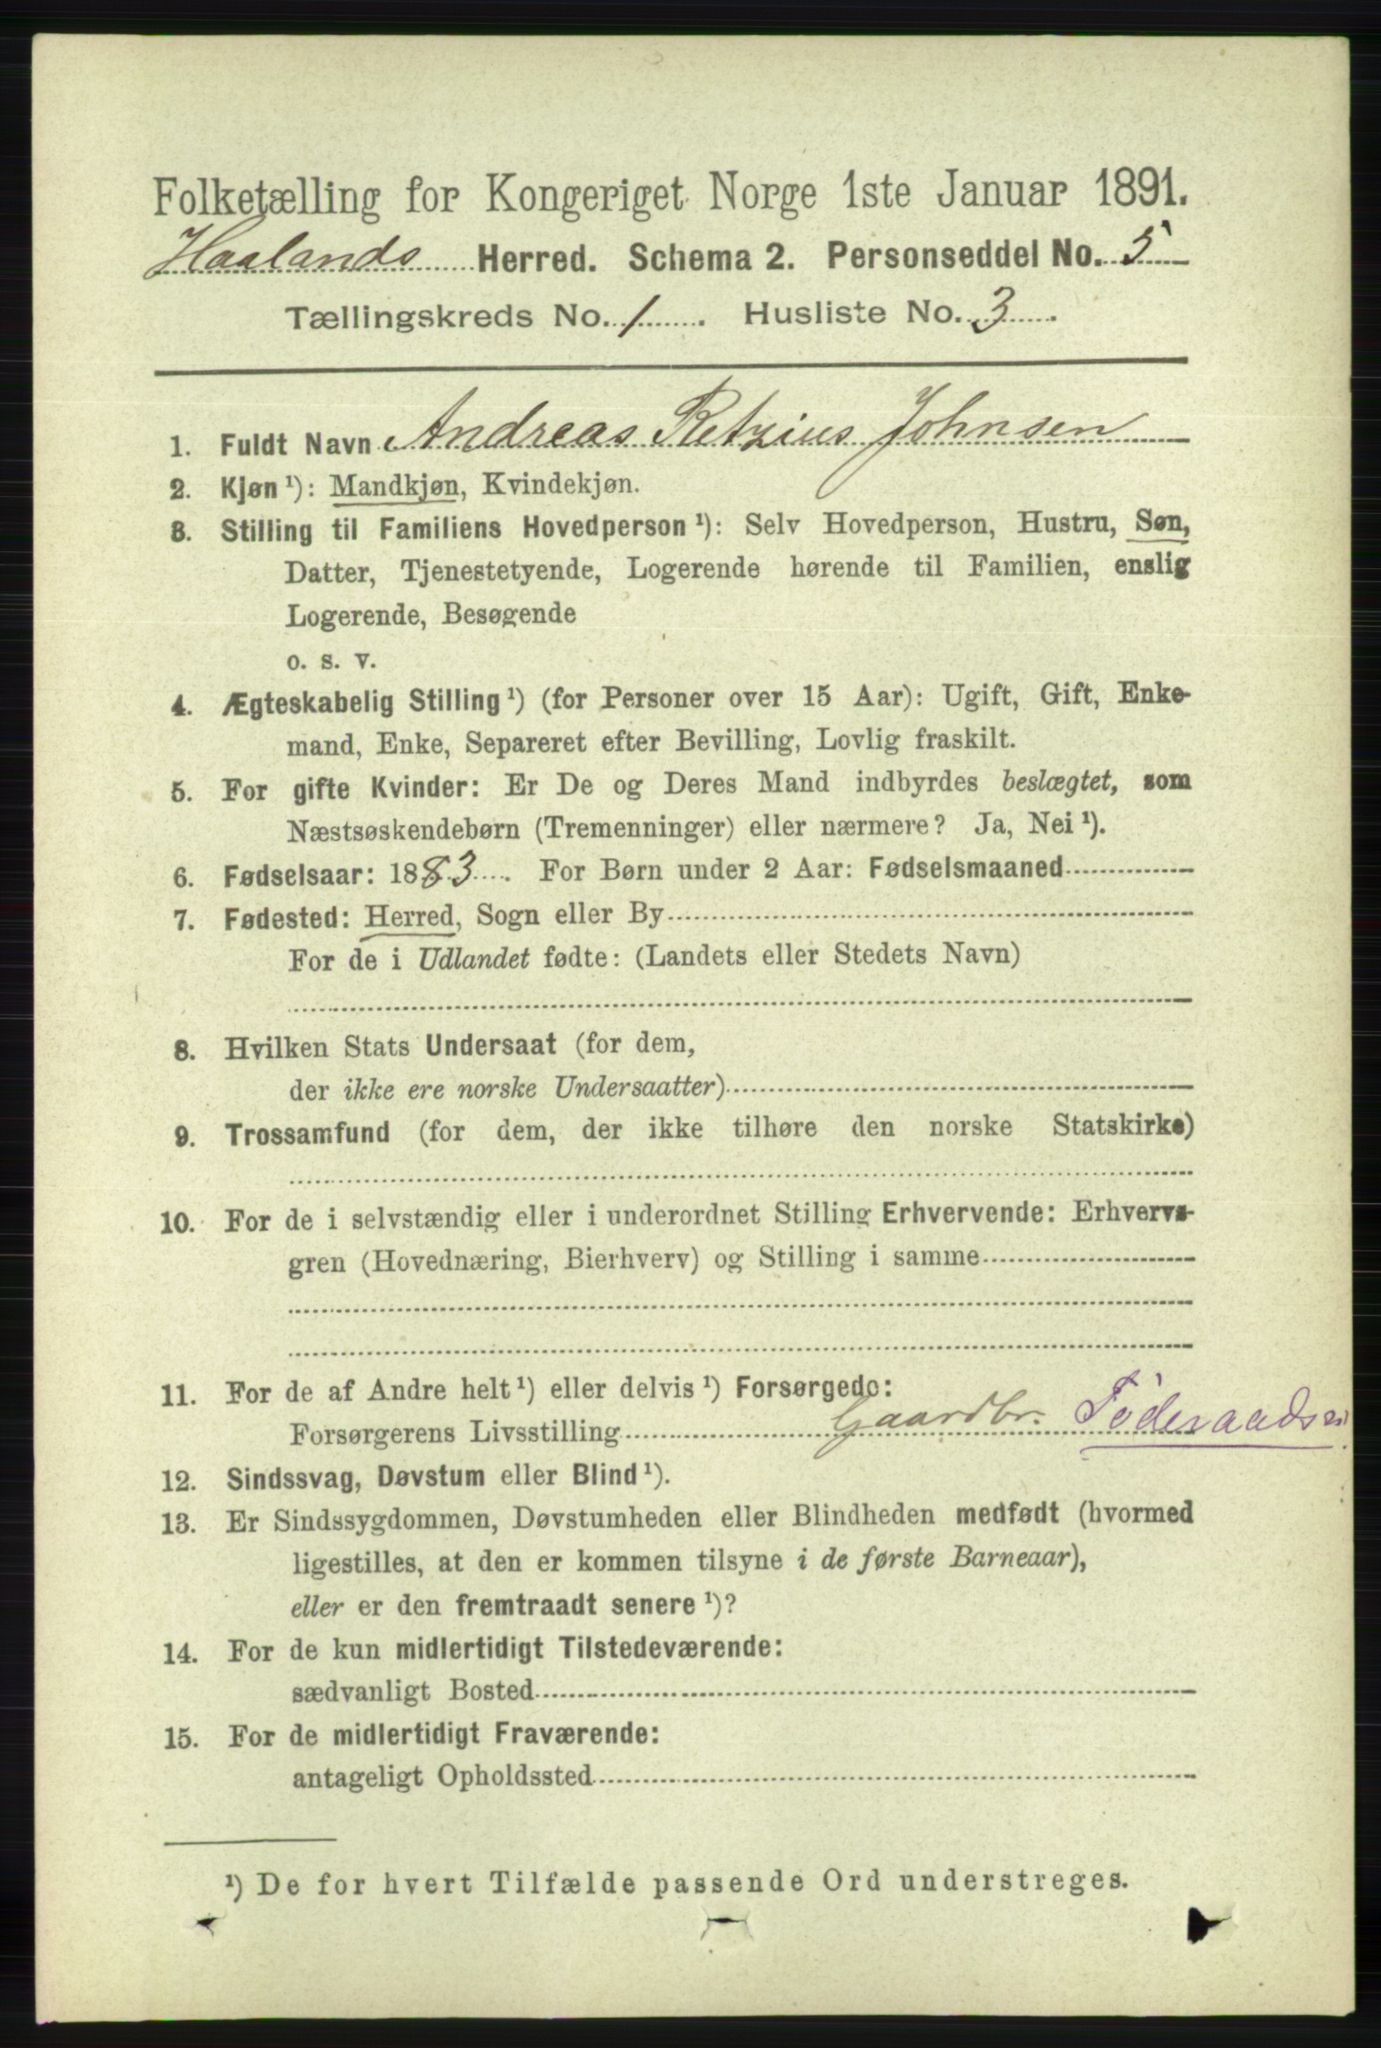 Folketælling for Kongeriget Norge 1ste Januar 1891.
Haalands Herred. Schema 2. Personseddel No. 5
Tællingskreds No. 1. Husliste No. 3.
1. Fuldt Navn Andreas Retzius Johnsen
2. Kjøn ¹): Mandkjøn, Kvindekjøn.
3. Stilling til Familiens Hovedperson ¹): Selv Hovedperson, Hustru, Søn,
Datter, Tjenestetyende, Logerende hørende til Familien, enslig
Logerende, Besøgende
o. s. v.
4. Ægteskabelig Stilling ¹) (for Personer over 15 Aar): Ugift, Gift, Enke-
mand, Enke, Separeret efter Bevilling, Lovlig fraskilt.
5. For gifte Kvinder: Er De og Deres Mand indbyrdes beslægtet, som
Næstsøskendebørn (Tremenninger) eller nærmere? Ja, Nei ¹).
6. Fødselsaar: 1883. For Børn under 2 Aar: Fødselsmaaned
7. Fødested: Herred, Sogn eller By
For de i Udlandet fødte: (Landets eller Stedets Navn)
8. Hvilken Stats Undersaat (for dem,
der ikke ere norske Undersaatter)
9. Trossamfund (for dem, der ikke tilhøre den norske Statskirke)
10. For de i selvstændig eller i underordnet Stilling Erhvervende: Erhvervs-
gren (Hovednæring, Bierhverv) og Stilling i samme
11. For de af Andre helt ¹) eller delvis ¹) Forsørgede:
Forsørgerens Livsstilling Gaardbr.
12. Sindssvag, Døvstum eller Blind ¹).
13. Er Sindssygdommen, Døvstumheden eller Blindheden medfødt (hvormed
ligestilles, at den er kommen tilsyne i de første Barneaar),
eller er den fremtraadt senere ¹)?
14. For de kun midlertidigt Tilstedeværende:
sædvanligt Bosted
15. For de midlertidigt Fraværende:
antageligt Opholdssted
¹) De for hvert Tilfælde passende Ord understreges.